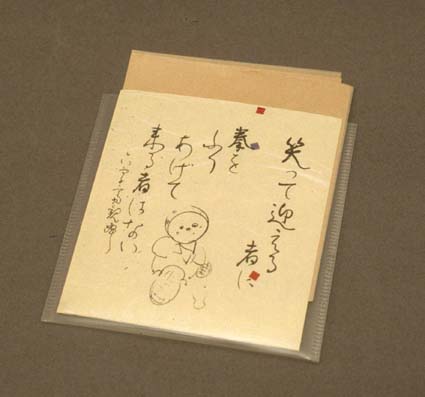 笑って迎える
者に
拳を
ふり
あげて
来る者はない